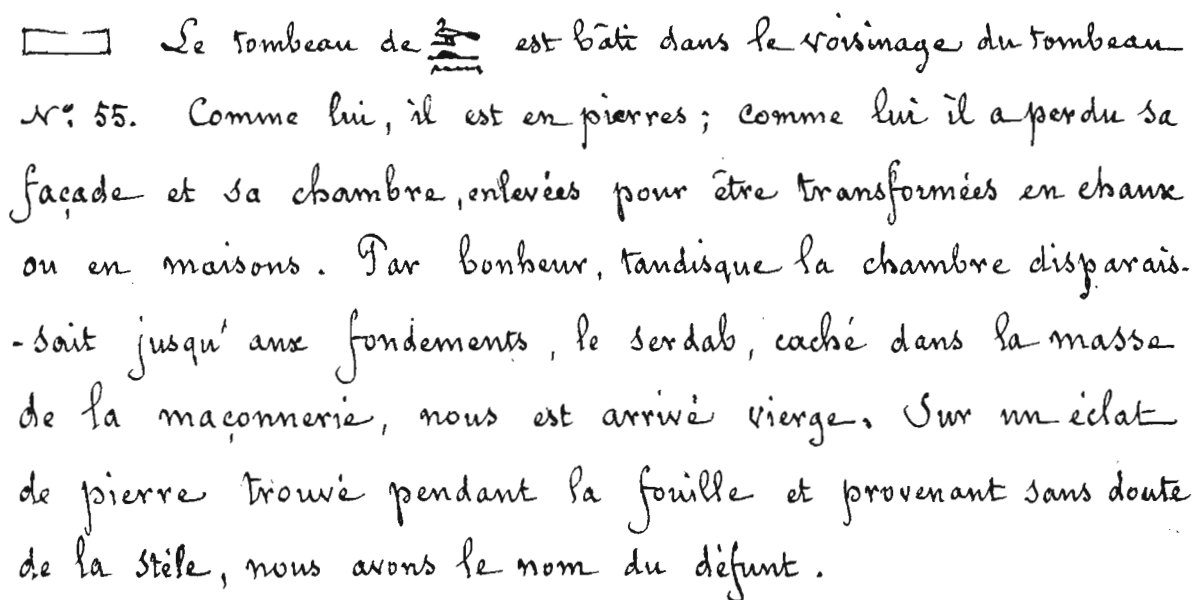 Le tombeau de est bâti dans le voisinage du tombeau
N° 55. Comme lui, il est en pierres ; comme lui il a perdu sa
façade et sa chambre, enlevées pour être transformées en chaux
ou en maisons. Par bonheur, tandisque la chambre disparais-
-sait jusqu'aux fondements, le serdab, caché dans la masse
de la maçonnerie, nous est arrivé vierge. Sur un éclat
de pierre trouvé pendant la fouille et provenant sans doute
de la stèle, nous avons le nom du défunt.